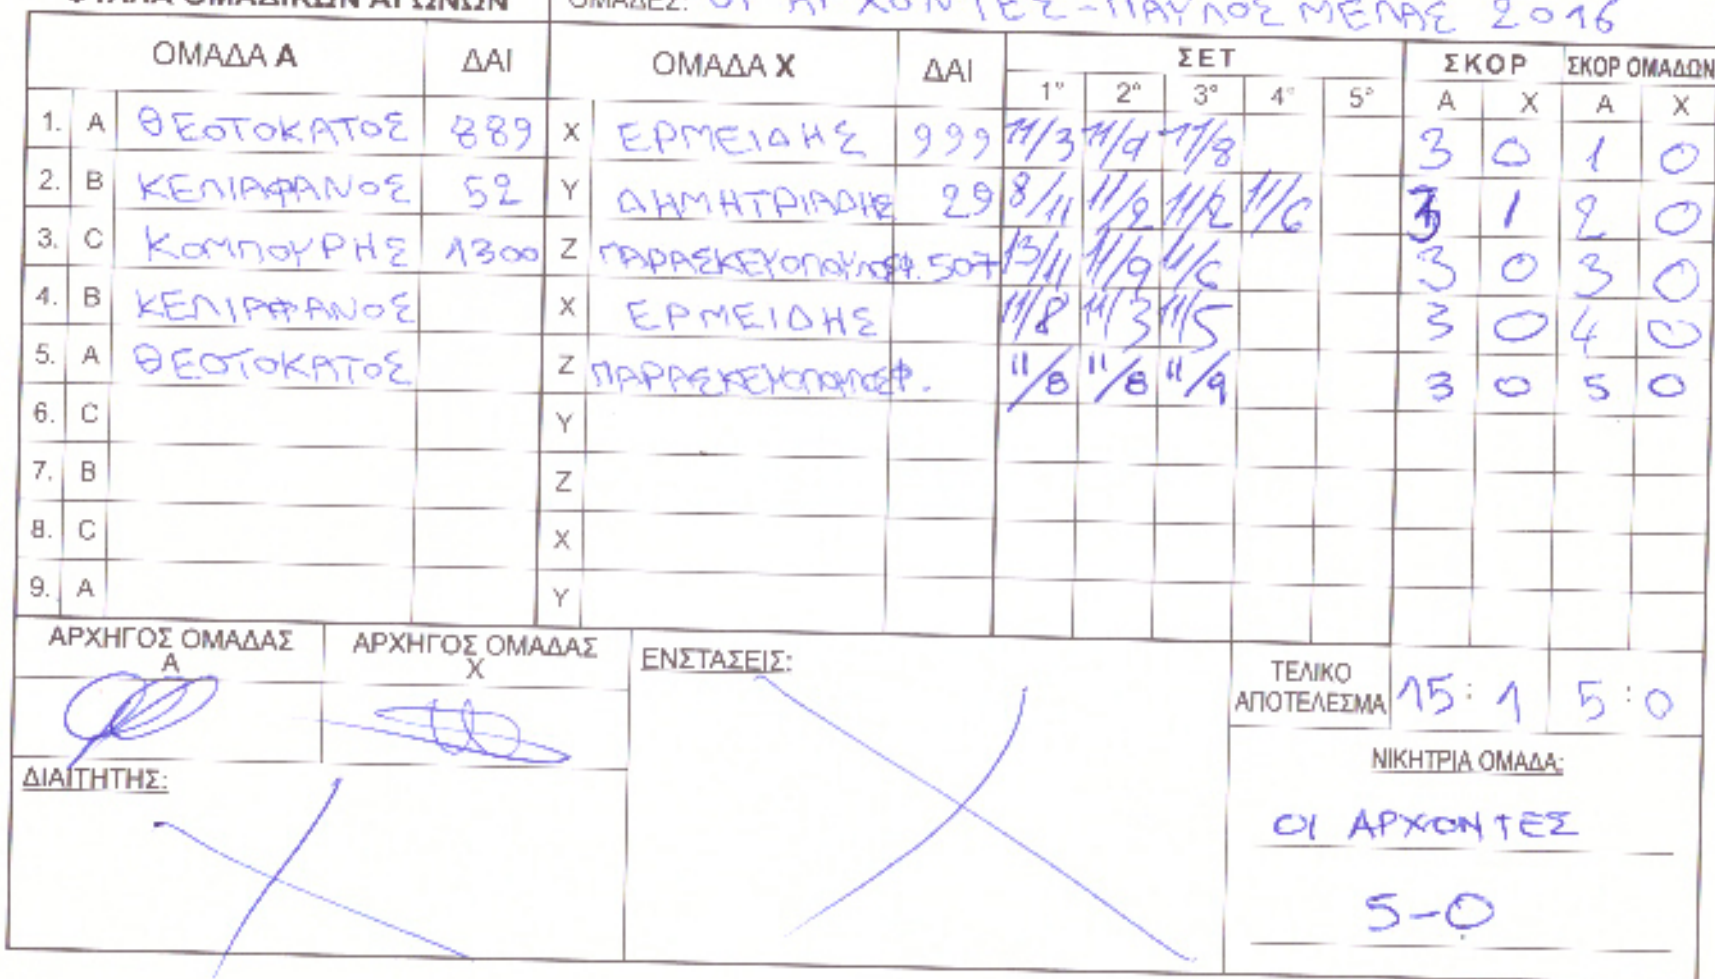 ΦΥΛΛΑ ΟΜΑΔΙΚΩΝ ΑΓΩΝΩΝ ΟΜΑΔΕΣ: ΟΙ ΑΡΧΟΝΤΕΣ-ΠΑΥΛΟΣ ΜΕΛΑΣ 2016
ΟΜΑΔΑ Α ΔΑΙ ΟΜΑΔΑ Χ ΔΑΙ ΣΕΤ ΣΚΟΡ ΣΚΟΡ ΟΜΑΔΩΝ
1° 2° 3° 4° 5° Α Χ Α Χ
1. A ΘΕΟΤΟΚΑΤΟΣ 889 X ΕΡΜΕΙΔΗΣ 999 11/3 11/9 11/8 3 0 1 0
2. B ΚΕΛΙΑΦΑΝΟΣ 52 Y ΔΗΜΗΤΡΙΑΔΗΣ 29 8/11 11/9 11/2 11/6 3 1 2 0
3. C ΚΟΜΠΟΥΡΗΣ 1300 Z ΠΑΡΑΣΚΕΥΟΠΟΥΛΟΣ Φ. 507 13/11 11/9 11/6 3 0 3 0
4. B ΚΕΛΙΑΦΑΝΟΣ X ΕΡΜΕΙΔΗΣ 11/8 11/3 11/5 3 0 4 0
5. A ΘΕΟΤΟΚΑΤΟΣ Z ΠΑΡΑΣΚΕΥΟΠΟΥΛΟΣ Φ. 11/8 11/8 11/9 3 0 5 0
6. C Y
7. B Z
8. C X
9. A Y
ΑΡΧΗΓΟΣ ΟΜΑΔΑΣ Α ΑΡΧΗΓΟΣ ΟΜΑΔΑΣ Χ ΕΝΣΤΑΣΕΙΣ: ΤΕΛΙΚΟ ΑΠΟΤΕΛΕΣΜΑ 15:1 5:0
ΔΙΑΙΤΗΤΗΣ: ΝΙΚΗΤΡΙΑ ΟΜΑΔΑ:
ΟΙ ΑΡΧΟΝΤΕΣ
5-0